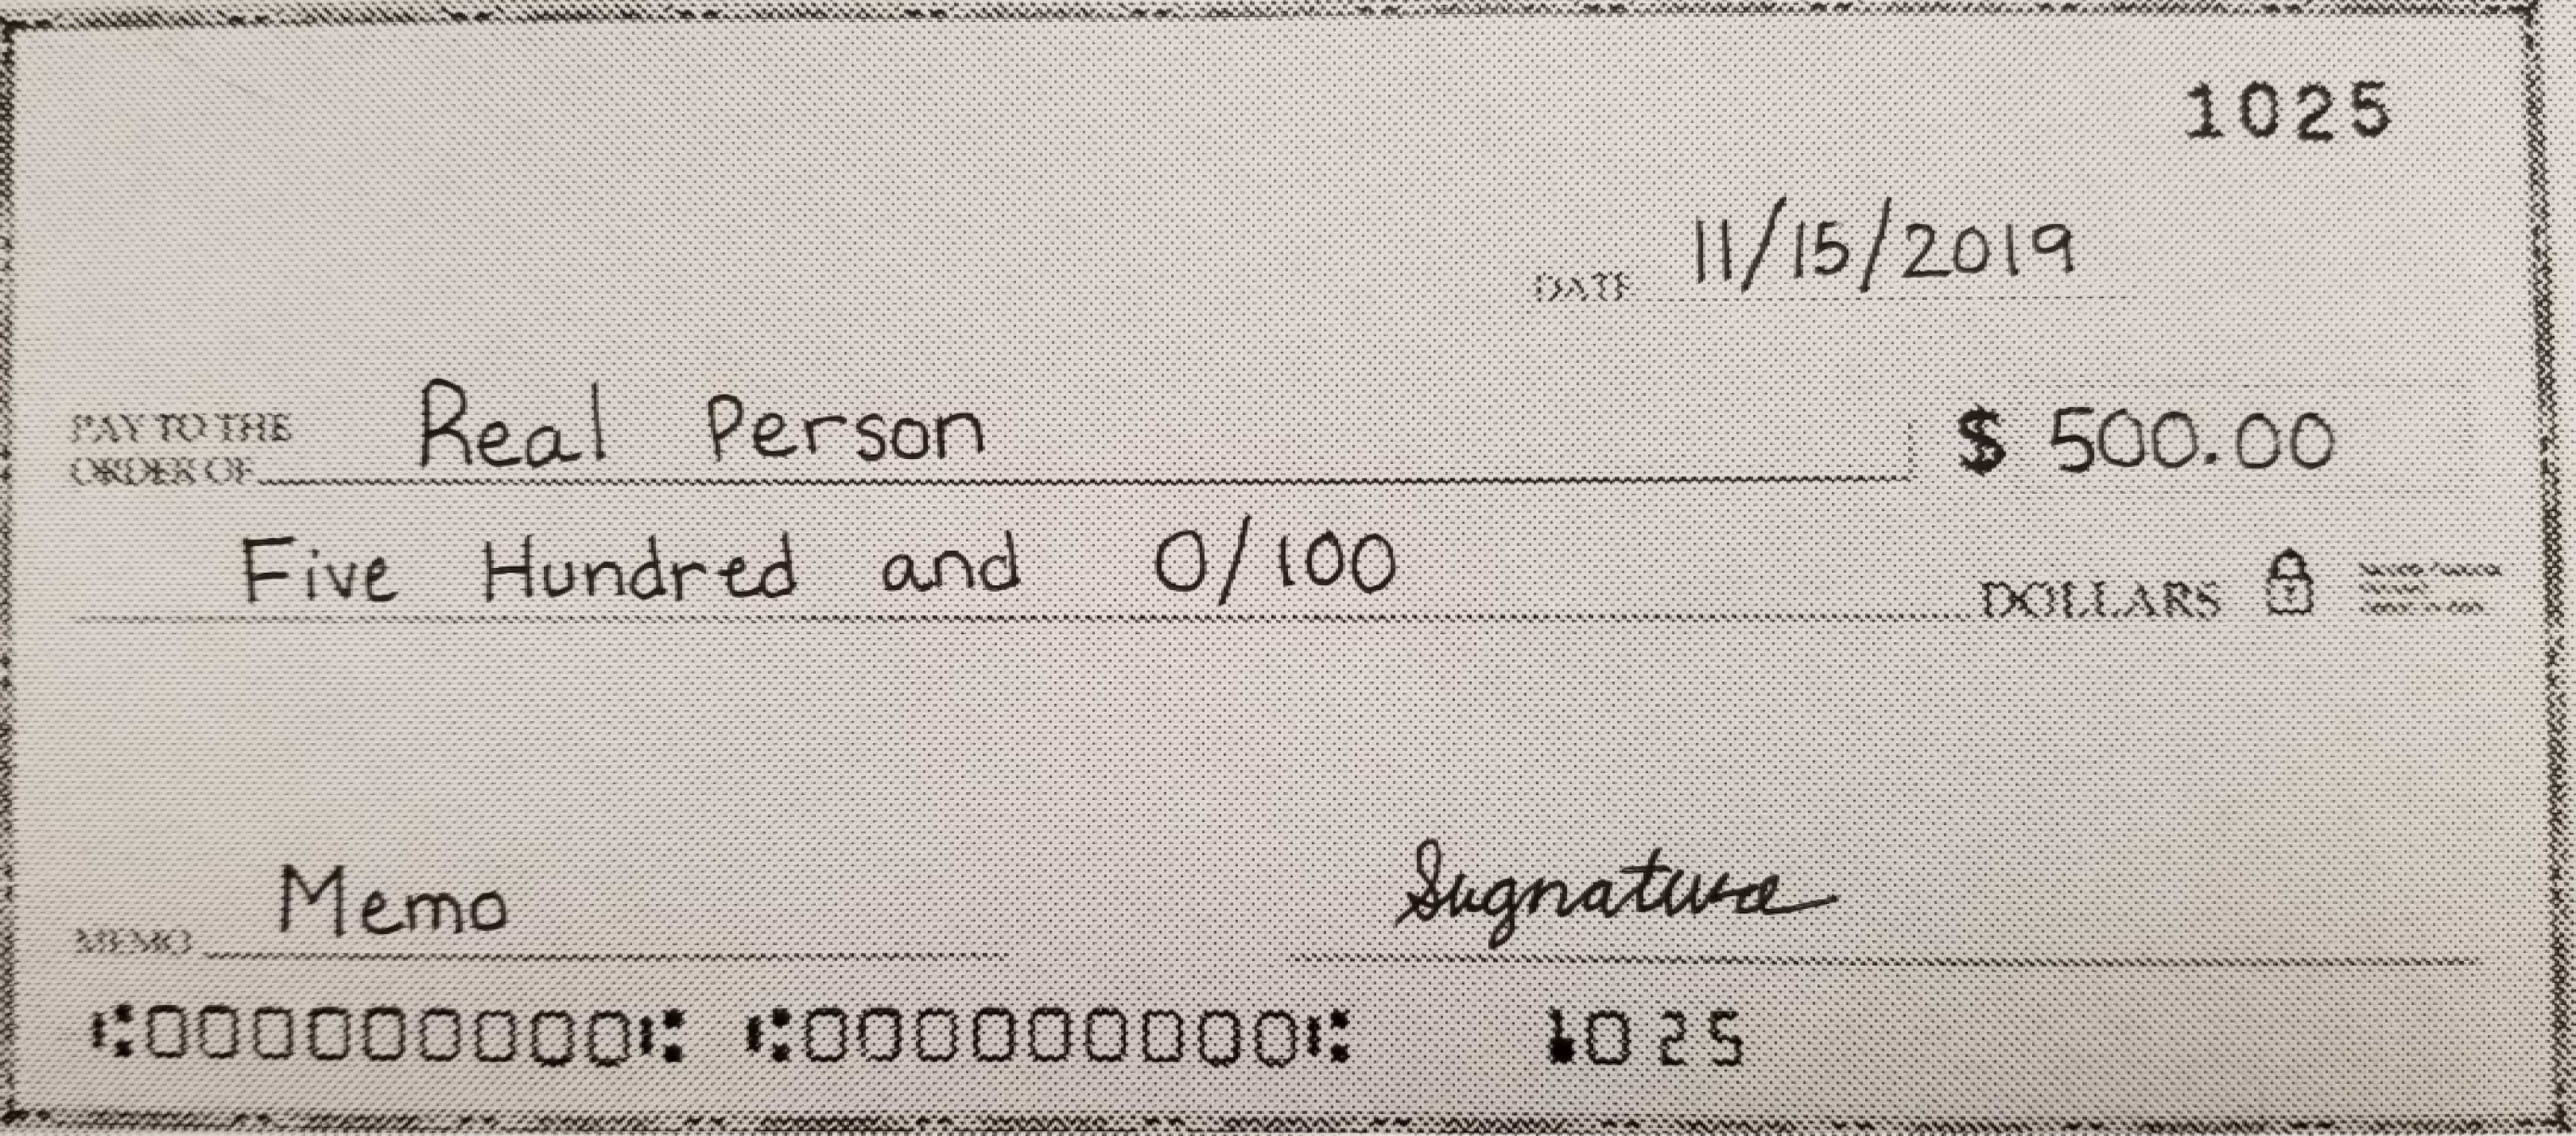 1025
DATE 11/15/2019
PAY TO THE
ORDER OF Real Person $ 500.00
Five Hundred and 0/100 DOLLARS
MEMO Memo Sugnature
⑆000000000⑆ ⑆000000000⑆ 1025